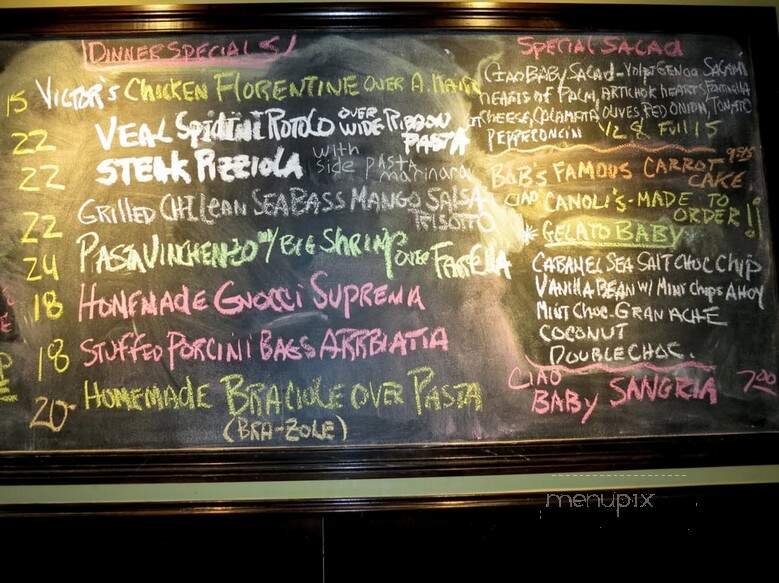 DINNER SPECIALS
15 VICTOR'S CHICKEN FLORENTINE OVER A. HAIR
22 VEAL SPIDINI ROTOLO OVER WIDE RIBBON PASTA
22 STEAK PIZZIOLA with side pasta marinara
22 GRILLED CHILEAN SEA BASS MANGO SALSA RISOTTO
24 PASTA VINCHENZO W/ BIG SHRIMP OVER
18 HOMEMADE GNOCCI SUPREMA
18 STUFFED PORCINI BAGS ARRBIATTA
20 HOMEMADE BRACIOLE OVER PASTA
(BRA-ZOLE)
SPECIAL SALAD
CIAO BABY SALAD - VOLPI GENOA SALAMI
HEARTS OF PALM, ARTICHOK HEARTS,
CHEESE, CALAMATA OLIVES, RED ONION, TOMATO
PEPPERONCIN 1/2 8 FULL 15
BOB'S FAMOUS CARROT CAKE
CIAO CANOLI'S - MADE TO ORDER!!
* GELATO BABY
CARAMEL SEA SALT CHOC CHIP
VANILLA BEAN W/ MINT CHIPS AHOY
MINT CHOC. GRANACHE
COCONUT
DOUBLE CHOC.
CIAO BABY SANGRIA 7.00
menupix